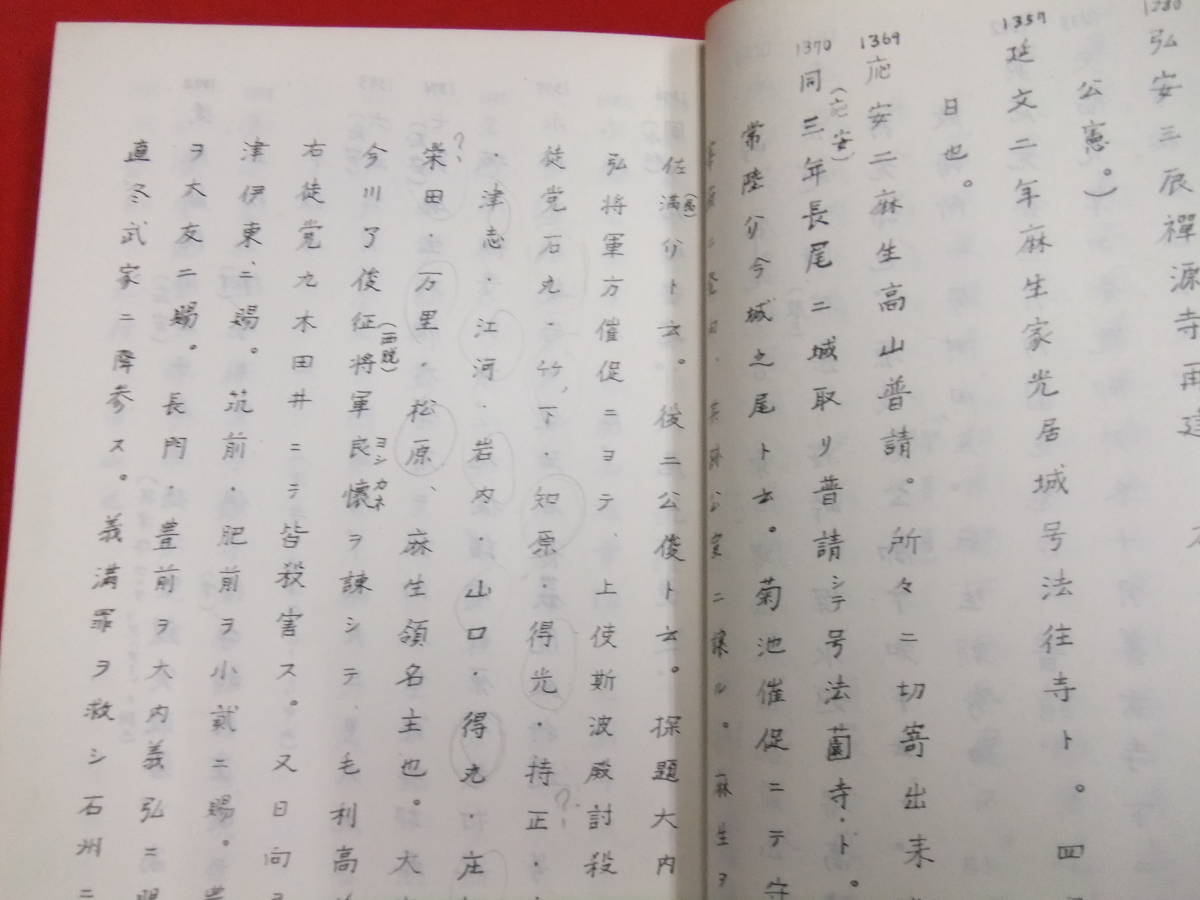 1280
弘安三辰禪源寺再建
公憲。）
1357
延文二年麻生家光居城号法往寺ト。四
日也。
1369
応安二麻生高山普請。所々ニ切寄出来
1370
同三年長尾ニ城取リ普請シテ号法薗寺ト。
（応安）
常陸介今城之尾ト云。菊池催促ニテ守
公実ニ譲ル。麻生ヲ
佐満介ト云。後ニ公俊ト云。探題大内
弘将軍方催促ニヨテ、上使斯波殿討殺
徒党石丸・竹下・知原・得光・持正・
・津志・江河・岩内・山口・得丸・庄
？
栄田・万里・松原、麻生領名主也。大
今川了俊征将軍良懐ヲ諫シテ、毛利高
（西脱）
ヨシカネ
右徒党九木田井ニテ皆殺害ス。又日向ヲ
津伊東ニ賜。筑前・肥前ヲ小貳ニ賜。
ヲ大友ニ賜。長門・豊前ヲ大内義弘ニ賜
直冬武家ニ降参ス。義満罪ヲ救シ石州ニ